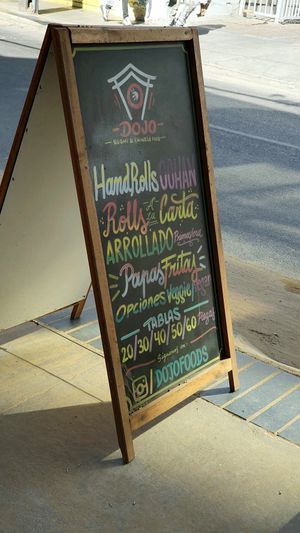 DOJO
HandRolls GOHAN
Rolls A La Carta
ARROLLADO Primavera
Papas Fritas
Opciones Veggie/Vegan
TABLAS
20/30/40/50/60 Piezas
Siguenos en:
/DOJOFOODS